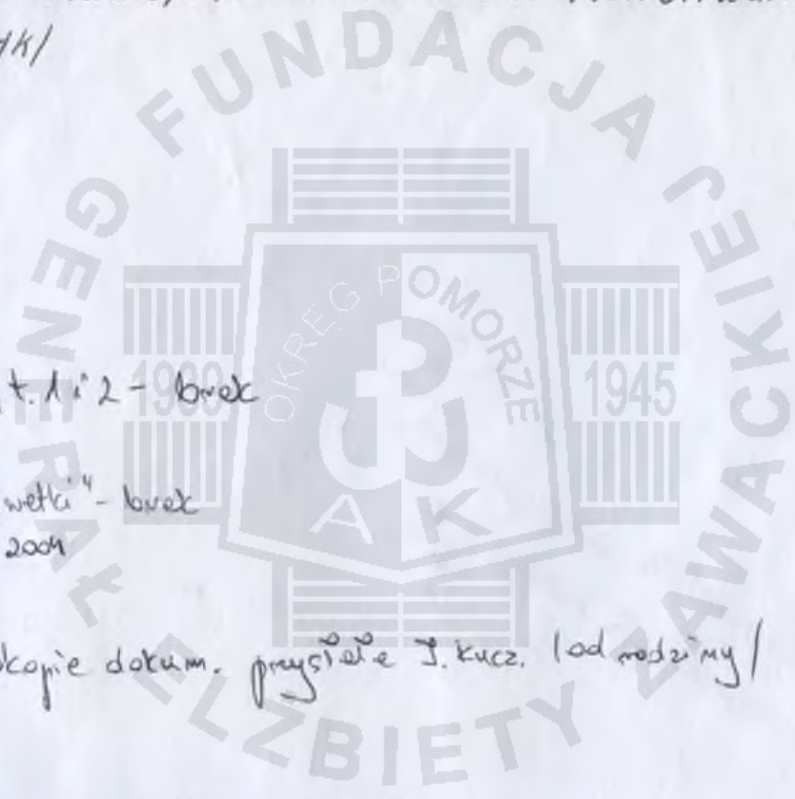 AK/
t. 1 i 2 - brak
wetki" - brak
2004
kopie dokum. przysłała J. Kucz. /od rodziny/
FUNDACJA GENERAŁ ELŻBIETY ZAWACKIEJ
OKRĘG POMORZE
1939 1945
AK